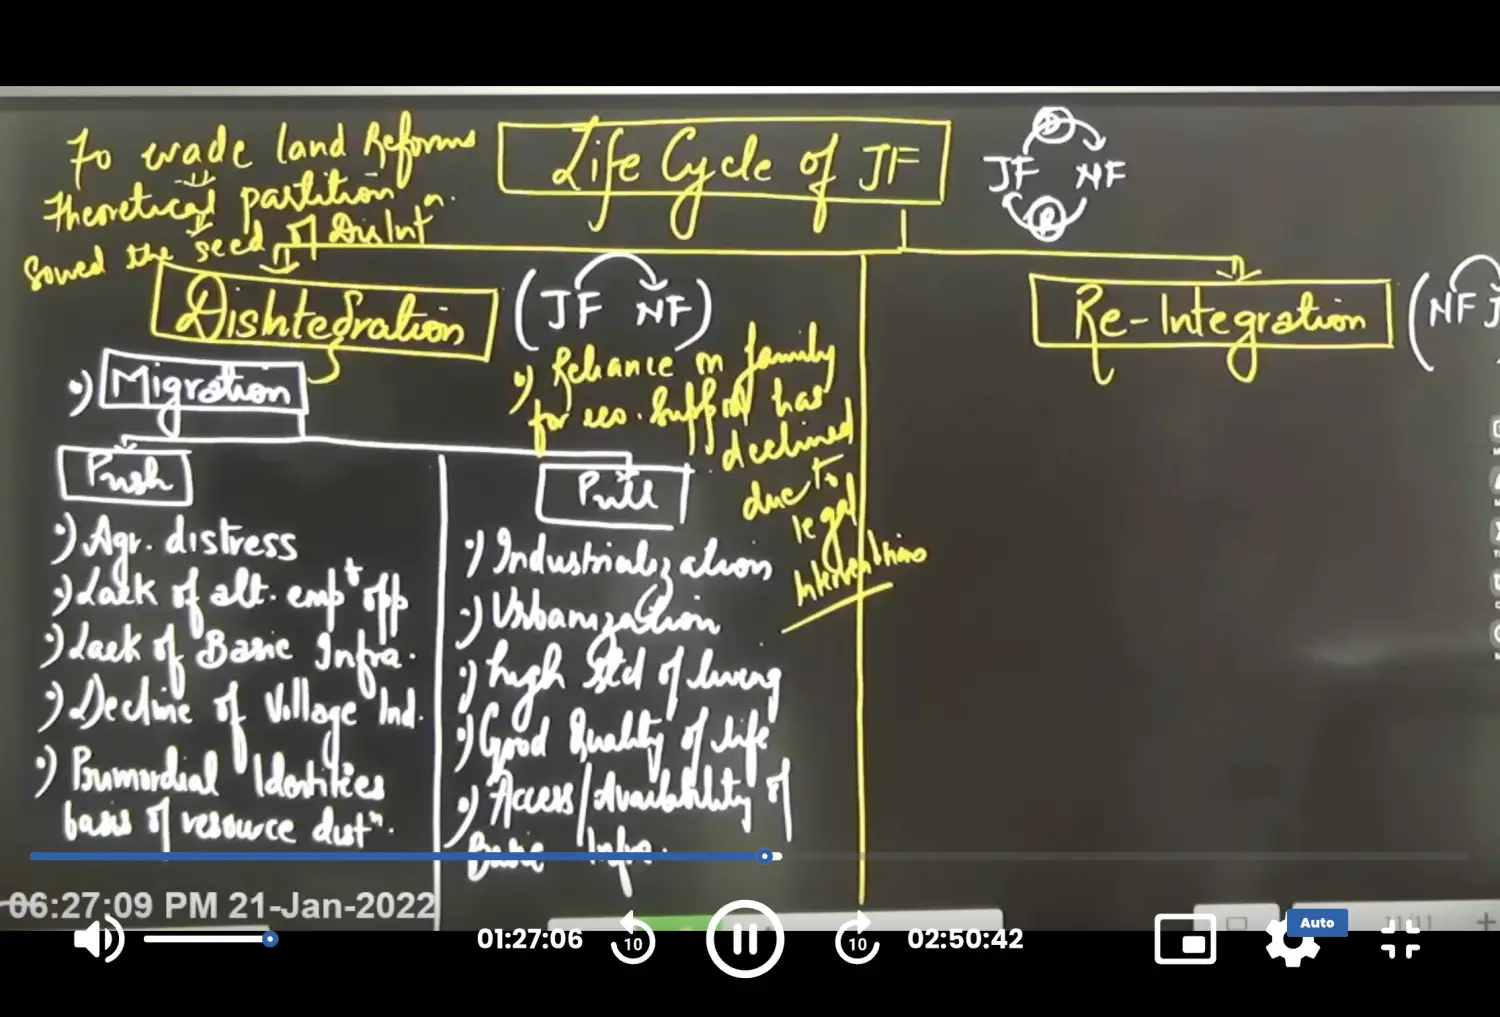 To evade land Reforms
Theoretical partition
Sowed the seed of DisIntⁿ.
Life Cycle of JF
D
JF NF
R
Disintegration
(JF NF)
Re-Integration
(NF J
•) Migration
•) Reliance on family
for eco. Support has
declined
due to
legal
Interventions
Push
•) Agr. distress
•) Lack of alt. empᵗ opp
•) Lack of Basic Infra.
•) Decline of Village Ind.
•) Primordial Identities
basis of resource distⁿ.
Pull
•) Industrialization
•) Urbanization
•) high Std of living
•) Good Quality of life
•) Access/Availability of
Basic Infra.
06:27:09 PM 21-Jan-2022
01:27:06
10
10
02:50:42
Auto